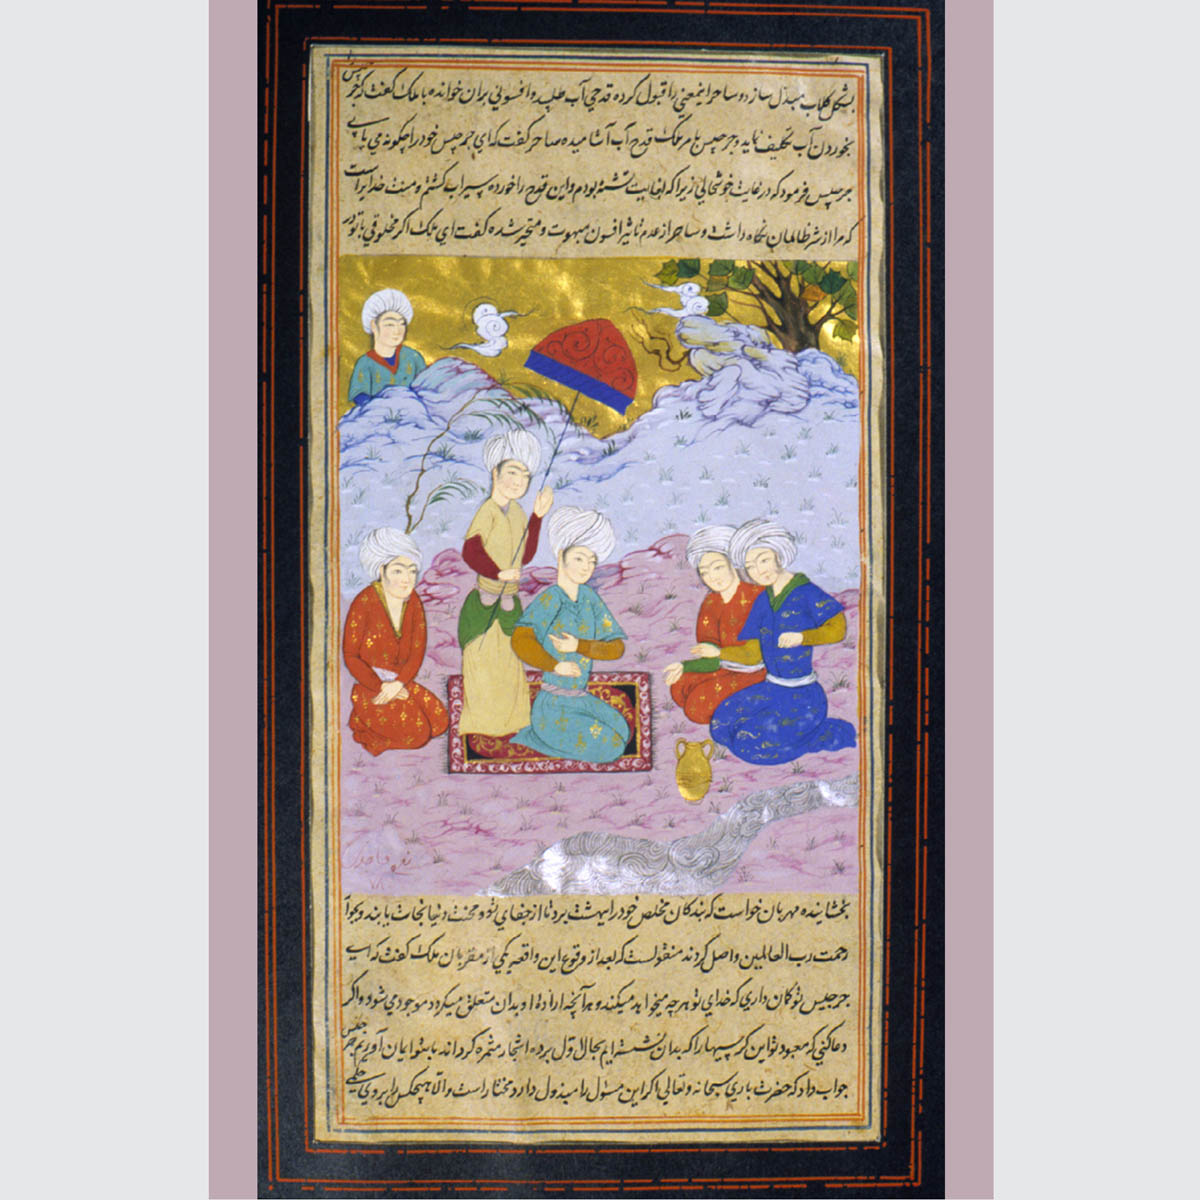 بشکل کلاب مبدل سازد و ساحر اینمعنی را قبول کرده قدحی آب طلبید و افسونی بران خوانده با ملک گفت که جرجیس را
بخوردن آب تکلیف نماید و جرجیس بامر ملک قدح آب آشامیده ساحر گفت که ای جرجیس خود را چگونه می یابی
جرجیس فرمود که در غایت خوشحالی زیرا که بغایت تشنه بودم و این قدح را خورده سیراب گشتم و منت خدایراست
که مرا از شر ظالمان نگاه داشت و ساحر از عدم تاثیر افسون مبهوت و متحیر شده گفت ای ملک اگر مخلوقی با تو در
بخشاینده مهربان خواست که بندگان مخلص خود را ببهشت برد تا از جفای تو و محنت دنیا نجات یابند و بجوار
رحمت رب العالمین واصل گردند منقولست که بعد از وقوع این واقعه یکی از مقربان ملک گفت که ای
جرجیس تو گمان داری که خدای تو هر چه میخواهد میکند و هر آنچه اراده او بدان متعلق میگردد موجود می شود و اگر
دعا کنی که معبود تو این کرسیها را که بدان نشسته ایم بحال اول برده اشجار مثمره گرداند ما بتو ایمان آوریم جرجیس
جواب داد که حضرت باری سبحانه و تعالی اگر این مسئول را مبذول دارد مختار است و الا هیچکس را بروی حکمی